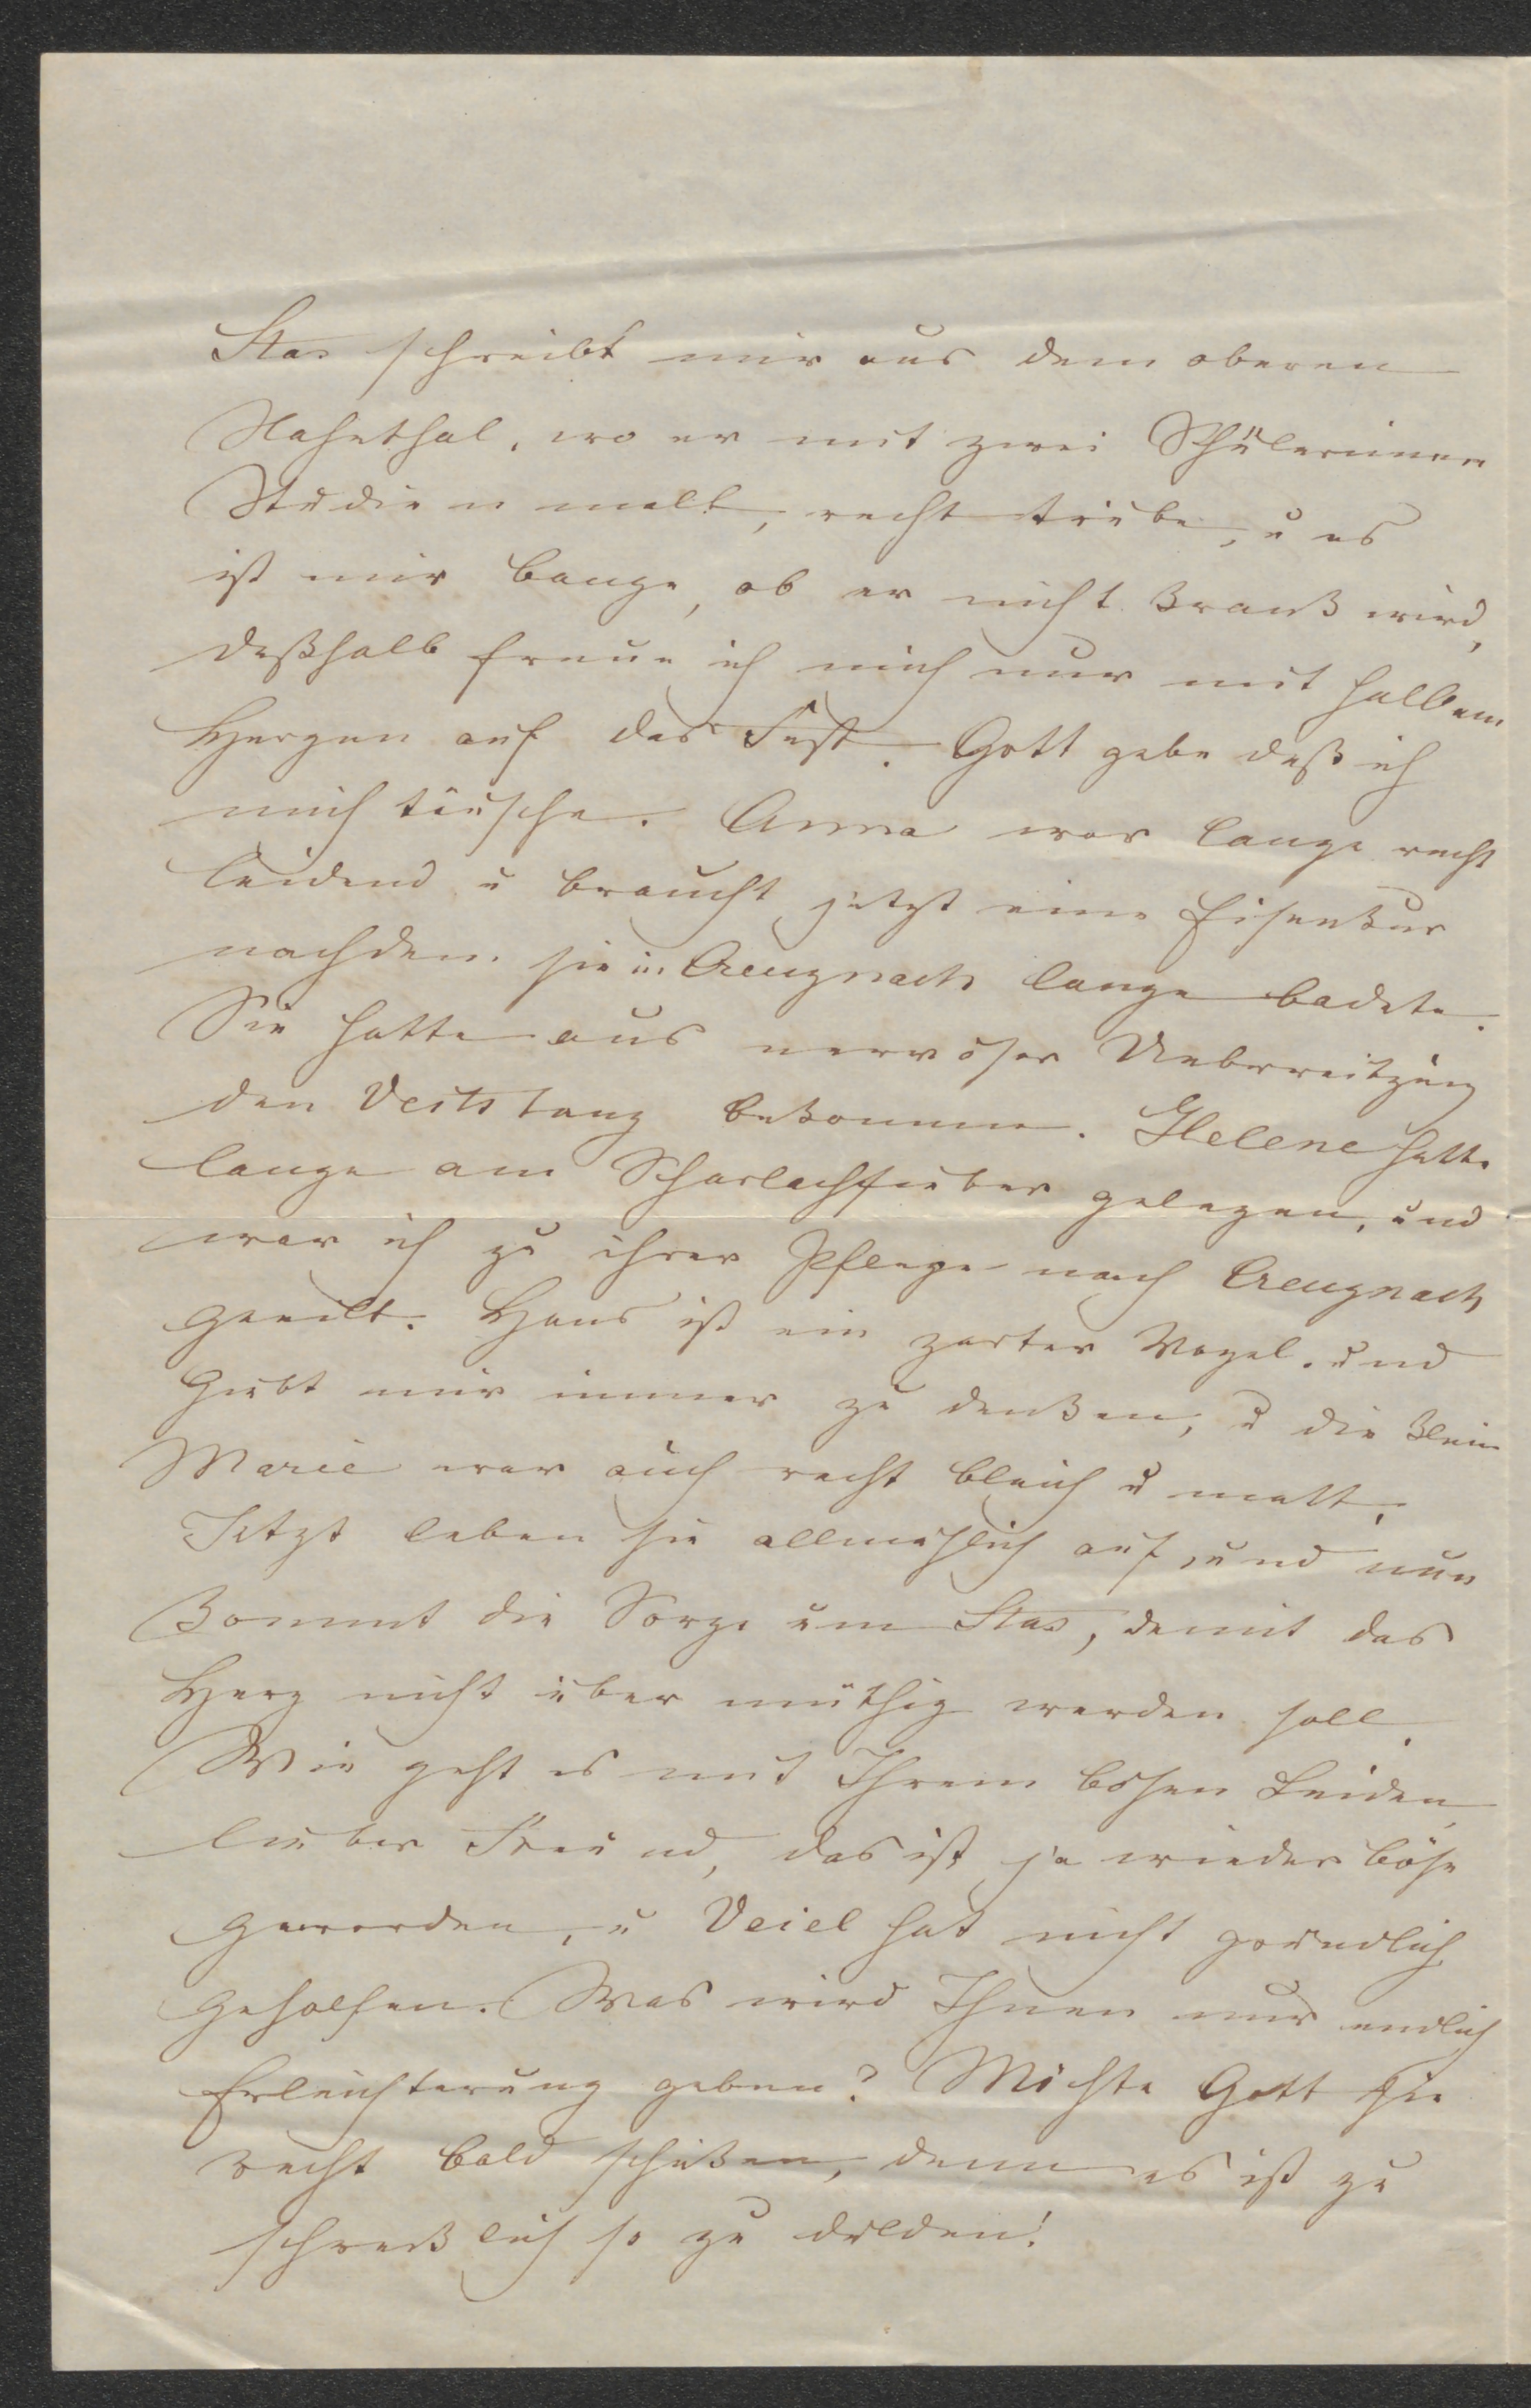 Stas schreibt mir aus dem oberen
Nahethal, wo er mit zwei Schülerinnen
Studien malt, recht trübe, u es
ist mir bange, ob er nicht krank wird,
deßhalb freue ich mich nur mit halbem
Herzen auf das Fest. Gott gebe daß ich
mich täusche. Anna war lange recht
leidend u braucht jetzt eine Eisenkur
nachdem sie in Creuznach lange badete.
Sie hatte aus nervöser Ueberreitzung
den Veitstanz bekommen. Helene hatte
lange am Scharlachfieber gelegen, und
war ich zu ihrer Pflege nach Creuznach
geeilt. Hans ist ein zarter Vogel. und
giebt mir immer zu denken, u die klein
Marie war auch recht bleich u matt,
Jetzt leben sie allmählich auf, und nun
kommt die Sorge um Stas, damit das
Herz nicht übermüthig werden soll.
Wie geht es mit Ihrem bösen Leiden,
lieber Freund, das ist ja wieder böse
geworden, u Veiel hat nicht gründlich
geholfen. Was wird Ihnen nur endlich
Erleichterung geben? Möchte Gott sie
recht bald schiken, denn es ist zu
schreklich so zu dulden!